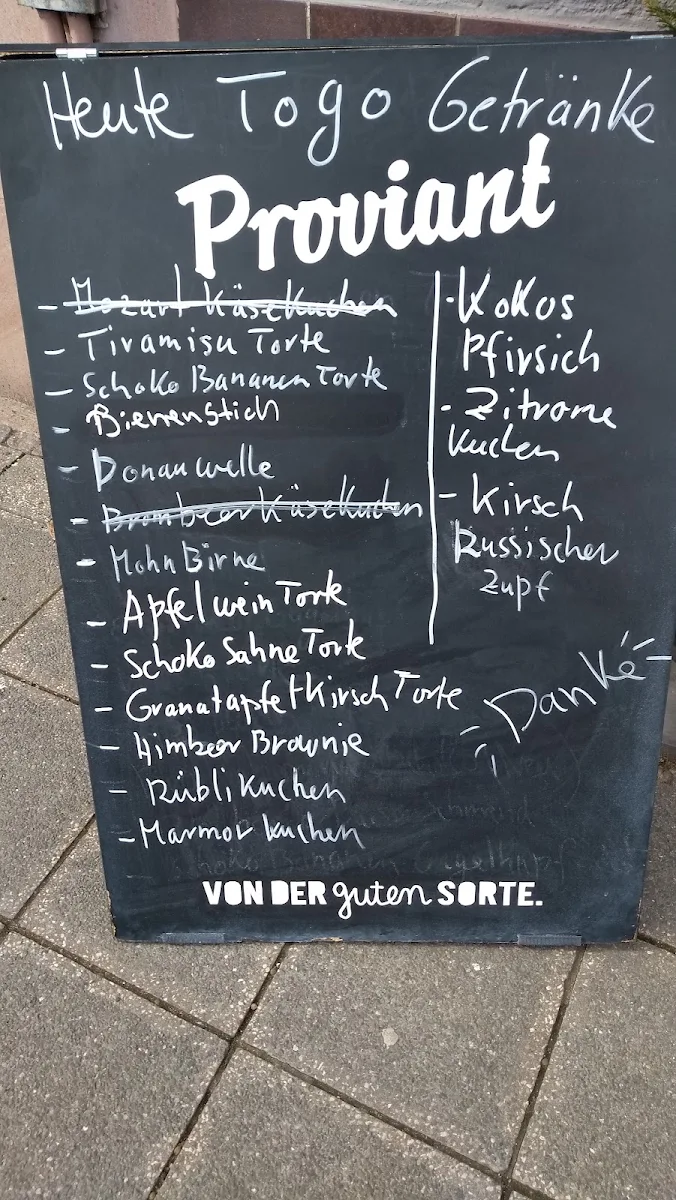 Heute Togo Getränke
Proviant
- Mozart Käsekuchen
- Tiramisu Torte
- Schoko Bananen Torte
- Bienenstich
- Donauwelle
- Brombeer Käsekuchen
- Mohn Birne
- Apfelwein Torte
- Schoko Sahne Torte
- Granatapfel Kirsch Torte
- Himbeer Brownie
- Rübli Kuchen
- Marmor kuchen
- Kokos
Pfirsich
- Zitrone
Kuchen
- Kirsch
Russischer
Zupf
Danke
VON DER guten SORTE.